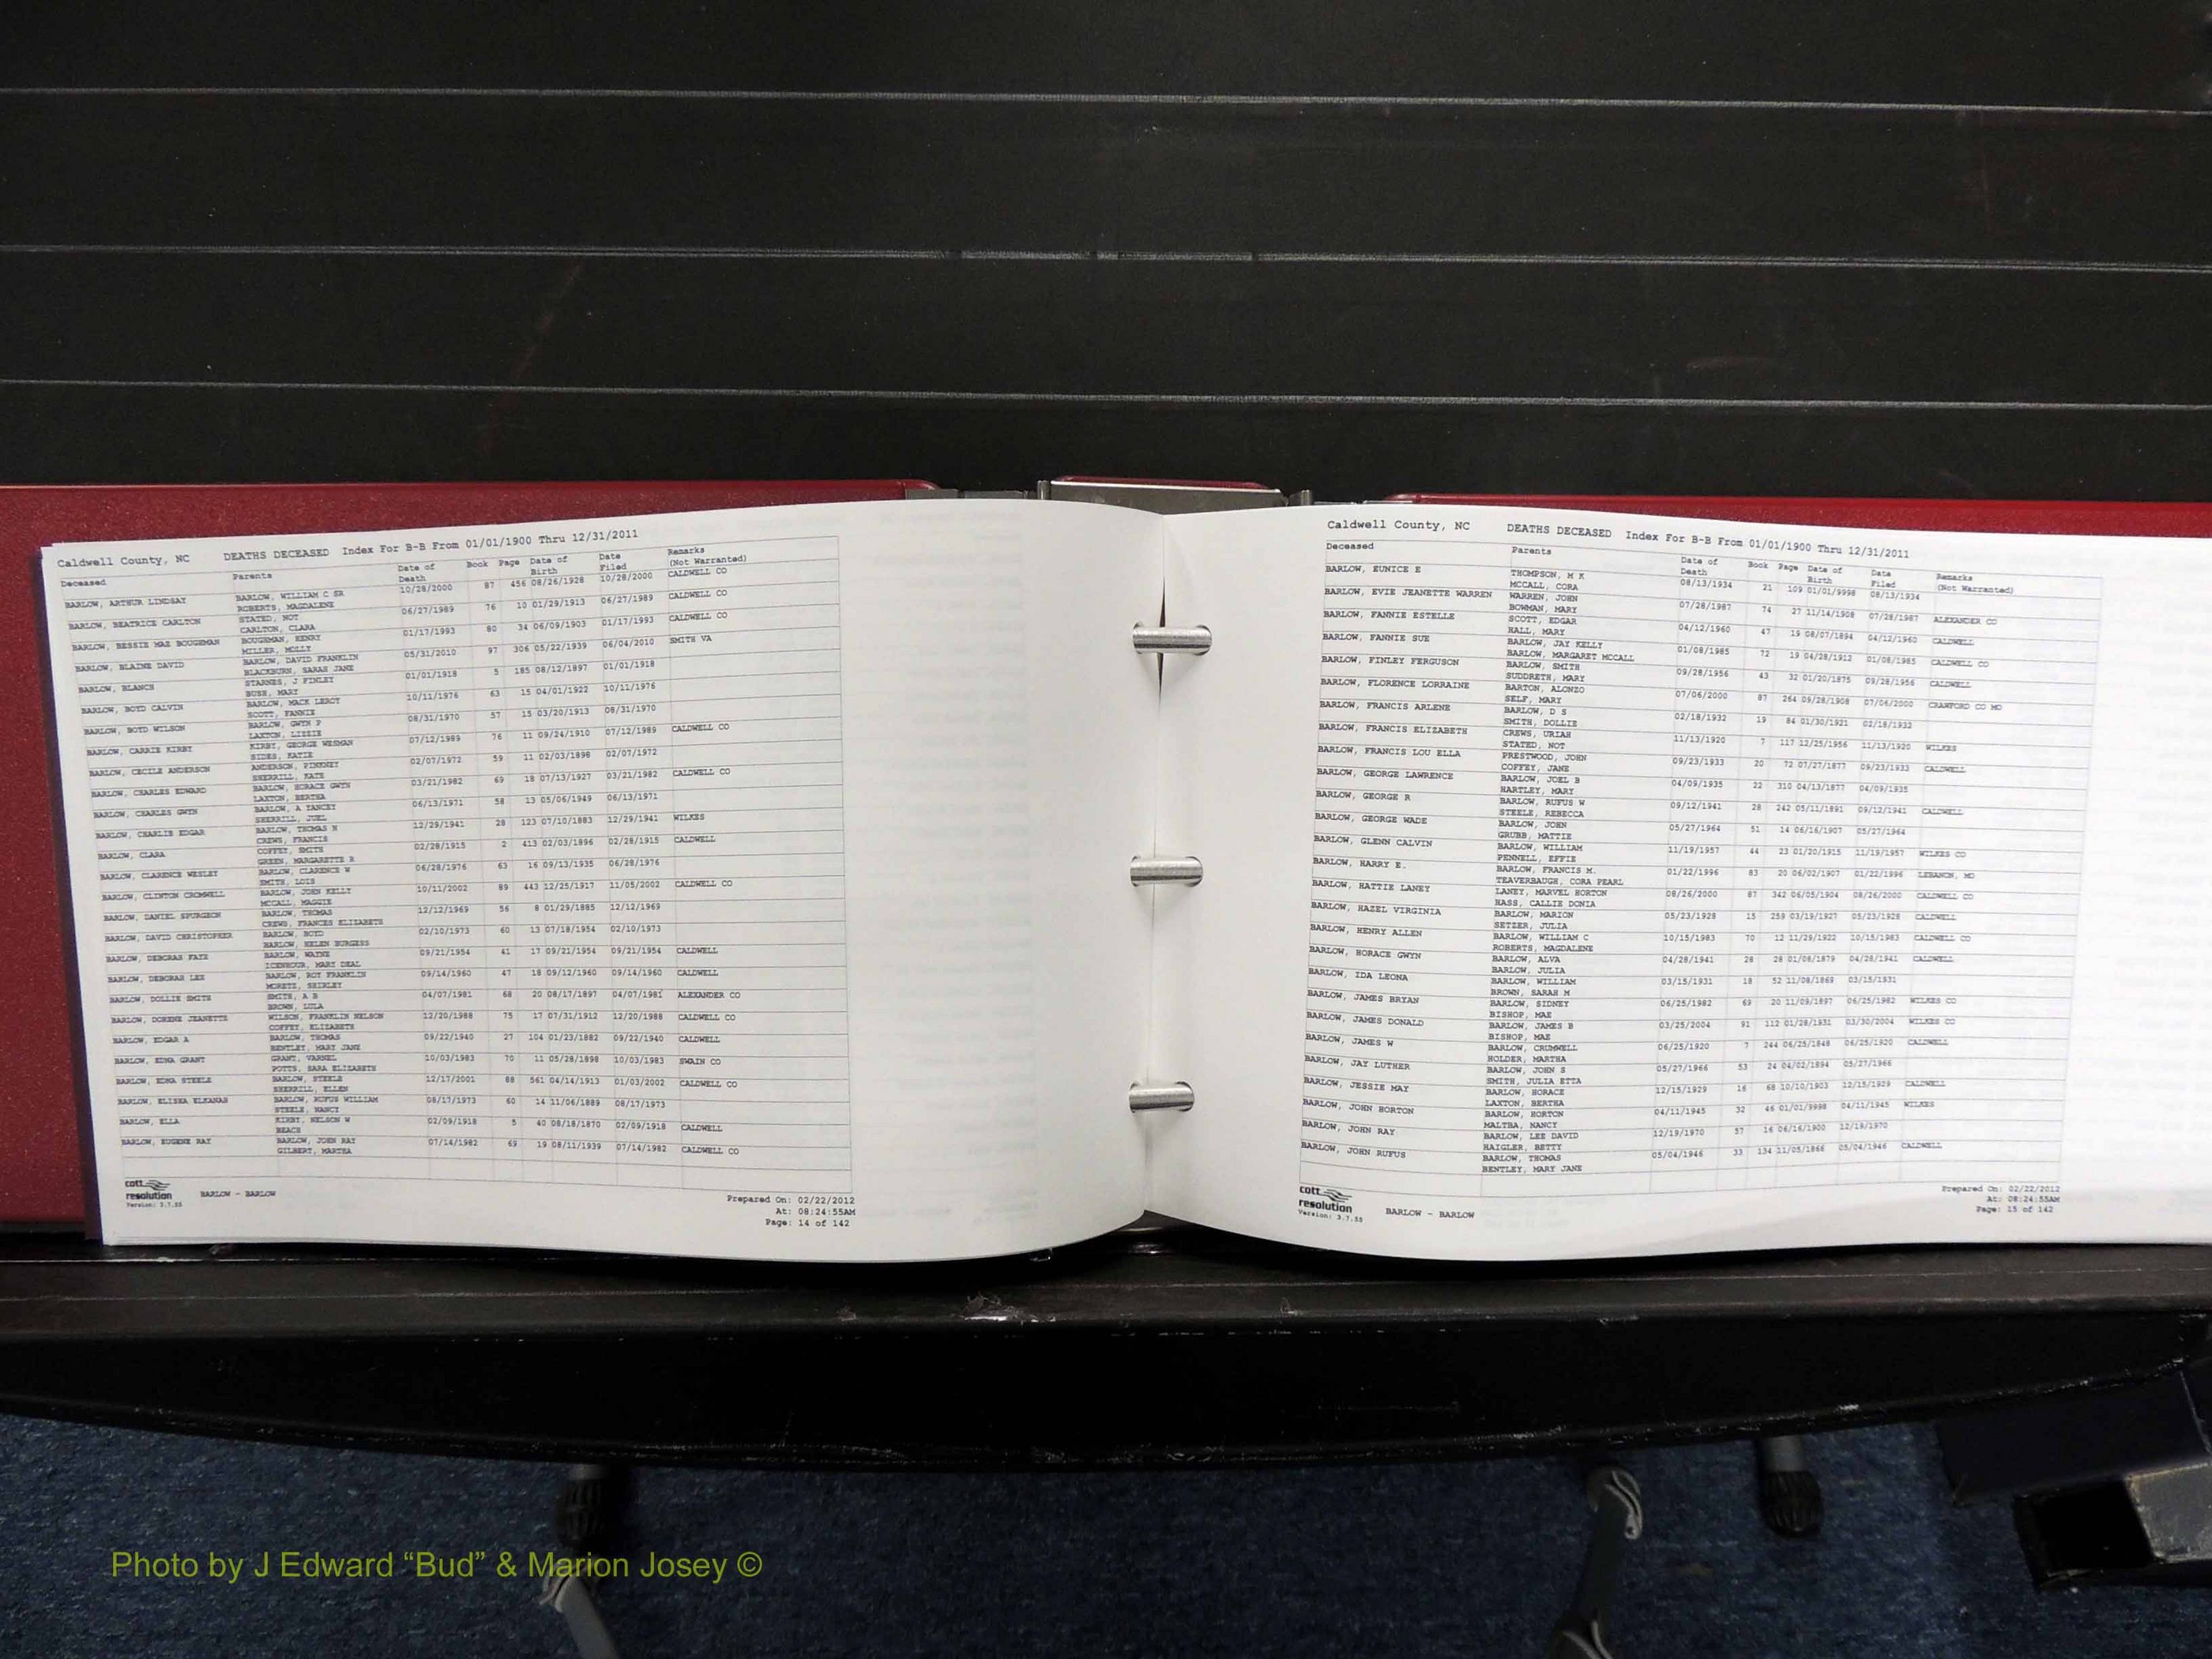 Caldwell County, NC DEATHS DECEASED Index For B-B From 01/01/1900 Thru 12/31/2011
Deceased Parents Date of Death Book Page Date of Birth Date Filed Remarks (Not Warranted)
BARLOW, ARTHUR LINDSAY BARLOW, WILLIAM C SR 10/28/2000 87 456 08/26/1928 10/28/2000 CALDWELL CO
ROBERTS, MAGDALENE
BARLOW, BEATRICE CARLTON STATED, NOT 06/27/1989 76 10 01/29/1913 06/27/1989 CALDWELL CO
CARLTON, CLARA
BARLOW, BESSIE MAE BOUGHMAN BOUGHMAN, HENRY 01/17/1993 80 34 06/09/1903 01/17/1993 CALDWELL CO
MILLER, MOLLY
BARLOW, BLAINE DAVID BARLOW, DAVID FRANKLIN 05/31/2010 97 306 05/22/1939 06/04/2010 SMITH VA
BLACKBURN, SARAH JANE
BARLOW, BLANCH STARNES, J FINLEY 01/01/1918 5 185 08/12/1897 01/01/1918
BUSH, MARY
BARLOW, BOYD CALVIN BARLOW, MACK LEROY 10/11/1976 63 15 04/01/1922 10/11/1976
SCOTT, FANNIE
BARLOW, BOYD WILSON BARLOW, GWYN P 08/31/1970 57 15 03/20/1913 08/31/1970
LAXTON, LIZZIE
BARLOW, CARRIE KIRBY KIRBY, GEORGE WESMAN 07/12/1989 76 11 09/24/1910 07/12/1989 CALDWELL CO
SIDES, KATIE
BARLOW, CECILE ANDERSON ANDERSON, PINKNEY 02/07/1972 59 11 02/03/1898 02/07/1972
SHERRILL, KATE
BARLOW, CHARLES EDWARD BARLOW, HORACE GWYN 03/21/1982 69 18 07/13/1927 03/21/1982 CALDWELL CO
LAXTON, BERTHA
BARLOW, CHARLES GWYN BARLOW, A YANCEY 06/13/1971 58 13 05/06/1949 06/13/1971
SHERRILL, JUEL
BARLOW, CHARLIE EDGAR BARLOW, THOMAS N 12/29/1941 28 123 07/10/1883 12/29/1941 WILKES
CREWS, FRANCIS
BARLOW, CLARA COFFEY, SMITH 02/28/1915 2 413 02/03/1896 02/28/1915 CALDWELL
GREEN, MARGARETTE R
BARLOW, CLARENCE WESLEY BARLOW, CLARENCE W 06/28/1976 63 16 09/13/1935 06/28/1976
SMITH, LOIS
BARLOW, CLINTON CROMWELL BARLOW, JOHN KELLY 10/11/2002 89 443 12/25/1917 11/05/2002 CALDWELL CO
MCCALL, MAGGIE
BARLOW, DANIEL SPURGEON BARLOW, THOMAS 12/12/1969 56 8 01/29/1885 12/12/1969
CREWS, FRANCES ELIZABETH
BARLOW, DAVID CHRISTOPHER BARLOW, BOYD 02/10/1973 60 13 07/18/1954 02/10/1973
BARLOW, HELEN BURGESS
BARLOW, DEBORAH FAYE BARLOW, WAYNE 09/21/1954 41 17 09/21/1954 09/21/1954 CALDWELL
ICENHOUR, MARY DEAL
BARLOW, DEBORAH LEE BARLOW, ROY FRANKLIN 09/14/1960 47 18 09/12/1960 09/14/1960 CALDWELL
MORETZ, SHIRLEY
BARLOW, DOLLIE SMITH SMITH, A B 04/07/1981 68 20 08/17/1897 04/07/1981 ALEXANDER CO
BROWN, LULA
BARLOW, DORENE JEANETTE WILSON, FRANKLIN NELSON 12/20/1988 75 17 07/31/1912 12/20/1988 CALDWELL CO
COFFEY, ELIZABETH
BARLOW, EDGAR A BARLOW, THOMAS 09/22/1940 27 104 01/23/1882 09/22/1940 CALDWELL
BENTLEY, MARY JANE
BARLOW, EDNA GRANT GRANT, VARNEL 10/03/1983 70 11 05/28/1898 10/03/1983 SWAIN CO
POTTS, SARA ELIZABETH
BARLOW, EDNA STEELE BARLOW, STEELE 12/17/2001 88 561 04/14/1913 01/03/2002 CALDWELL CO
SHERRILL, ELLEN
BARLOW, ELISHA ELKANAH BARLOW, RUFUS WILLIAM 08/17/1973 60 14 11/06/1889 08/17/1973
STEELE, NANCY
BARLOW, ELLA KIRBY, NELSON W 02/09/1918 5 40 08/18/1870 02/09/1918 CALDWELL
BEACH
BARLOW, EUGENE RAY BARLOW, JOHN RAY 07/14/1982 69 19 08/11/1939 07/14/1982 CALDWELL CO
GILBERT, MARTHA
cott
resolution BARLOW - BARLOW Prepared On: 02/22/2012
Version: 3.7.55 At: 08:24:55AM
Page: 14 of 142
Caldwell County, NC DEATHS DECEASED Index For B-B From 01/01/1900 Thru 12/31/2011
Deceased Parents Date of Death Book Page Date of Birth Date Filed Remarks (Not Warranted)
BARLOW, EUNICE E THOMPSON, M K 08/13/1934 21 109 01/01/9998 08/13/1934
MCCALL, CORA
BARLOW, EVIE JEANETTE WARREN WARREN, JOHN 07/28/1987 74 27 11/14/1908 07/28/1987 ALEXANDER CO
BOWMAN, MARY
BARLOW, FANNIE ESTELLE SCOTT, EDGAR 04/12/1960 47 19 08/07/1894 04/12/1960 CALDWELL
HALL, MARY
BARLOW, FANNIE SUE BARLOW, JAY KELLY 01/08/1985 72 19 04/28/1912 01/08/1985 CALDWELL CO
BARLOW, MARGARET MCCALL
BARLOW, FINLEY FERGUSON BARLOW, SMITH 09/28/1956 43 32 01/20/1875 09/28/1956 CALDWELL
SUDDRETH, MARY
BARLOW, FLORENCE LORRAINE BARTON, ALONZO 07/06/2000 87 264 09/28/1908 07/06/2000 CRAWFORD CO MO
SELF, MARY
BARLOW, FRANCIS ARLENE BARLOW, D S 02/18/1932 19 84 01/30/1921 02/18/1932
SMITH, DOLLIE
BARLOW, FRANCIS ELIZABETH CREWS, URIAH 11/13/1920 7 117 12/25/1956 11/13/1920 WILKES
STATED, NOT
BARLOW, FRANCIS LOU ELLA PRESTWOOD, JOHN 09/23/1933 20 72 07/27/1877 09/23/1933 CALDWELL
COFFEY, JANE
BARLOW, GEORGE LAWRENCE BARLOW, JOEL B 04/09/1935 22 310 04/13/1877 04/09/1935
HARTLEY, MARY
BARLOW, GEORGE R BARLOW, RUFUS W 09/12/1941 28 242 05/11/1891 09/12/1941 CALDWELL
STEELE, REBECCA
BARLOW, GEORGE WADE BARLOW, JOHN 05/27/1964 51 14 06/16/1907 05/27/1964
GRUBB, MATTIE
BARLOW, GLENN CALVIN BARLOW, WILLIAM 11/19/1957 44 23 01/20/1915 11/19/1957 WILKES CO
PENNELL, EFFIE
BARLOW, HARRY E. BARLOW, FRANCIS M. 01/22/1996 83 20 06/02/1907 01/22/1996 LEBANON, MO
TEAVERBAUGH, CORA PEARL
BARLOW, HATTIE LANEY LANEY, MARVEL HORTON 08/26/2000 87 342 06/05/1904 08/26/2000 CALDWELL CO
HASS, CALLIE DONIA
BARLOW, HAZEL VIRGINIA BARLOW, MARION 05/23/1928 15 259 03/19/1927 05/23/1928 CALDWELL
SETZER, JULIA
BARLOW, HENRY ALLEN BARLOW, WILLIAM C 10/15/1983 70 12 11/29/1922 10/15/1983 CALDWELL CO
ROBERTS, MAGDALENE
BARLOW, HORACE GWYN BARLOW, ALVA 04/28/1941 28 28 01/08/1879 04/28/1941 CALDWELL
BARLOW, JULIA
BARLOW, IDA LEONA BARLOW, WILLIAM 03/15/1931 18 52 11/08/1869 03/15/1931
BROWN, SARAH M
BARLOW, JAMES BRYAN BARLOW, SIDNEY 06/25/1982 69 20 11/09/1897 06/25/1982 WILKES CO
BISHOP, MAE
BARLOW, JAMES DONALD BARLOW, JAMES B 03/25/2004 91 112 01/28/1931 03/30/2004 WILKES CO
BISHOP, MAE
BARLOW, JAMES W BARLOW, CRUMWELL 06/25/1920 7 244 06/25/1848 06/25/1920 CALDWELL
HOLDER, MARTHA
BARLOW, JAY LUTHER BARLOW, JOHN S 05/27/1966 53 24 04/02/1894 05/27/1966
SMITH, JULIA ETTA
BARLOW, JESSIE MAY BARLOW, HORACE 12/15/1929 16 68 10/10/1903 12/15/1929 CALDWELL
LAXTON, BERTHA
BARLOW, JOHN HORTON BARLOW, HORTON 04/11/1945 32 46 01/01/9998 04/11/1945 WILKES
MALTBA, NANCY
BARLOW, JOHN RAY BARLOW, LEE DAVID 12/19/1970 57 16 06/16/1900 12/19/1970
HAIGLER, BETTY
BARLOW, JOHN RUFUS BARLOW, THOMAS 05/04/1946 33 134 11/05/1866 05/04/1946 CALDWELL
BENTLEY, MARY JANE
cott
resolution BARLOW - BARLOW Prepared On: 02/22/2012
Version: 3.7.55 At: 08:24:55AM
Page: 15 of 142
Photo by J Edward “Bud” & Marion Josey ©